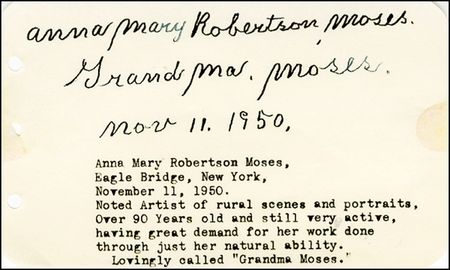 anna mary Robertson, Moses.
Grand Ma. Moses.
Nov 11. 1950.
Anna Mary Robertson Moses,
Eagle Bridge, New York,
November 11, 1950.
Noted Artist of rural scenes and portraits,
Over 90 Years old and still very active,
having great demand for her work done
through just her natural ability.
Lovingly called "Grandma Moses."